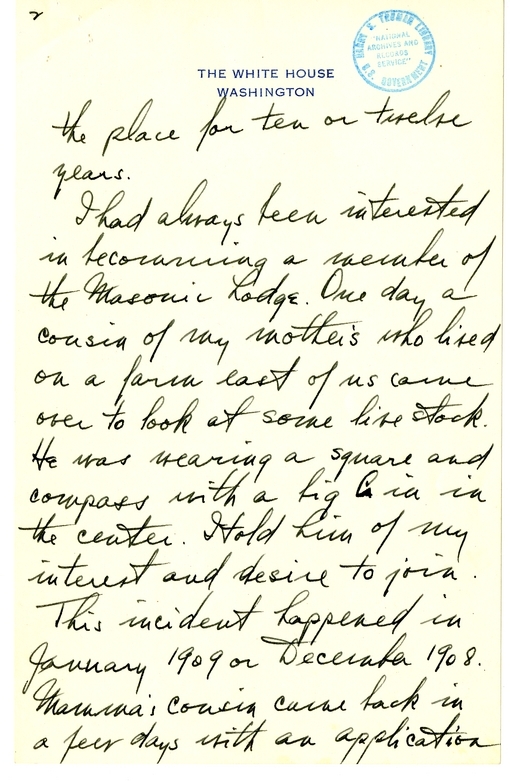 2
HARRY S. TRUMAN LIBRARY
"NATIONAL
ARCHIVES AND
RECORDS
SERVICE"
U.S. GOVERNMENT
THE WHITE HOUSE
WASHINGTON
the place for ten or twelve
years.
I had always been interested
in becomming a member of
the Masonic Lodge. One day a
cousin of my mother's who lived
on a farm east of us came
over to look at some live stock.
He was wearing a square and
compass with a big G in in
the center. I told him of my
interest and desire to join.
This incident happened in
January 1909 or December 1908.
Mamma's cousin came back in
a few days with an application